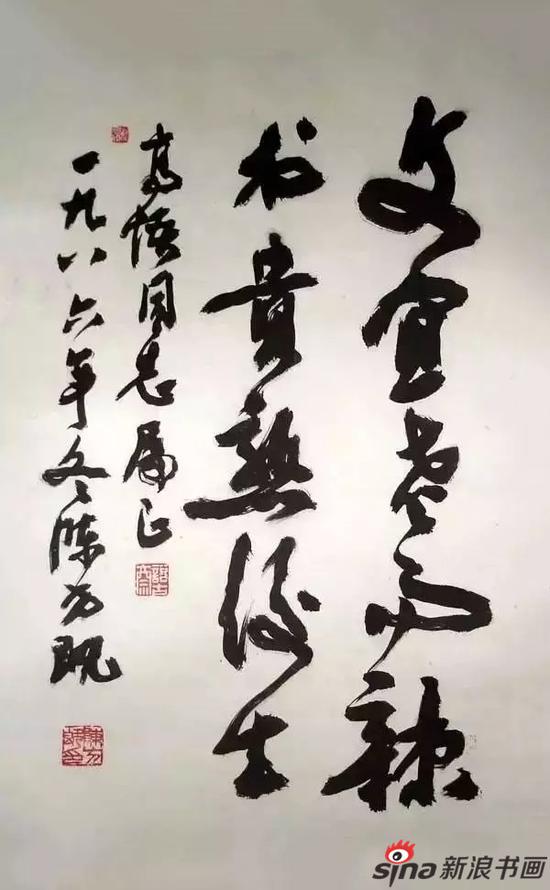 文宜老而辣
书贵熟後生
高同志属正
一九八六年冬陈方既
sina新浪书画